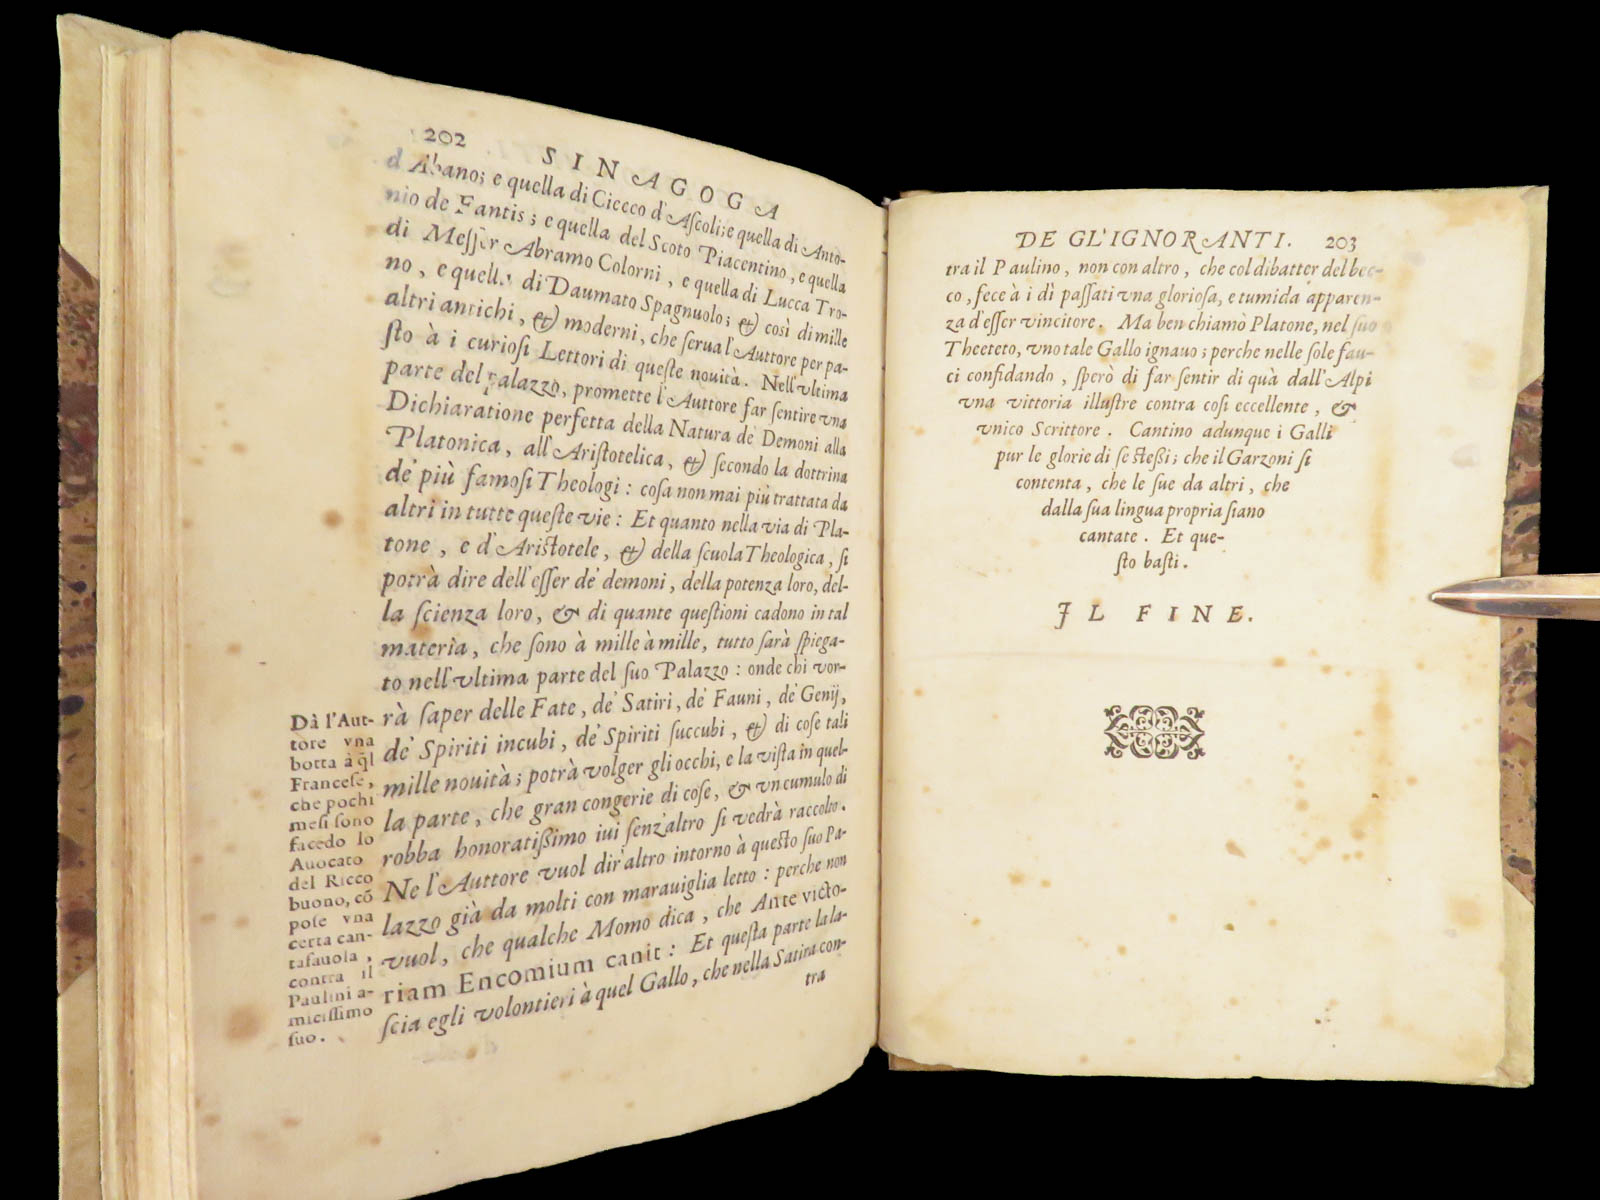 202
SINAGOGA
d'Abano; e quella di Cicco d'Aſcoli; e quella di Anto-
nio de Fantis; e quella del Scoto Piacentino, e quella
di Meſſer Abramo Colorni, e quella di Lucca Tro-
no, e quella di Daumato Spagnuolo; & così di mille
altri antichi, & moderni, che ſerua l'Auttore per pa-
ſto à i curioſi Lettori di queſte nouità. Nell'vltima
parte del Palazzo, promette l'Auttore far ſentire vna
Dichiaratione perfetta della Natura de' Demoni alla
Platonica, all'Ariſtotelica, & ſecondo la dottrina
de' più famoſi Theologi: coſa non mai più trattata da
altri in tutte queſte vie: Et quanto nella via di Pla-
tone, e d'Ariſtotele, & della ſcuola Theologica, ſi
potrà dire dell'eſſer de' demoni, della potenza loro, del-
la ſcienza loro, & di quante queſtioni cadono in tal
materia, che ſono à mille à mille, tutto ſarà ſpiega-
to nell'vltima parte del ſuo Palazzo: onde chi vor-
rà ſaper delle Fate, de' Satiri, de' Fauni, de' Genij,
de' Spiriti incubi, de' Spiriti ſuccubi, & di coſe tali
mille nouità; potrà volger gli occhi, e la viſta in quel-
la parte, che gran congerie di coſe, & vn cumulo di
robba honoratißimo iui ſenz'altro ſi vedrà raccolto.
Ne l'Auttore vuol dir'altro intorno à queſto ſuo Pa-
lazzo già da molti con marauiglia letto: perche non
vuol, che qualche Momo dica, che Ante victo-
riam Encomium canit: Et queſta parte la la-
ſcia egli volontieri à quel Gallo, che nella Satira con-
tra
Dà l'Aut-
tore vna
botta à q̃l
Franceſe,
che pochi
meſi ſono
facedo lo
Auocato
del Ricco
buono, cõ
poſe vna
certa can-
tafauola,
contra il
Paulini a-
miciſſimo
ſuo.
DE GL'IGNORANTI. 203
tra il Paulino, non con altro, che col dibatter del bec-
co, fece à i dì paſſati vna glorioſa, e tumida apparen-
za d'eſſer vincitore. Ma ben chiamò Platone, nel ſuo
Theeteto, vno tale Gallo ignauo; perche nelle ſole fau-
ci confidando, ſperò di far ſentir di quà dall'Alpi
vna vittoria illuſtre contra coſi eccellente, &
vnico Scrittore. Cantino adunque i Galli
pur le glorie di ſe ſteßi; che il Garzoni ſi
contenta, che le ſue da altri, che
dalla ſua lingua propria ſiano
cantate. Et que-
ſto baſti.
IL FINE.